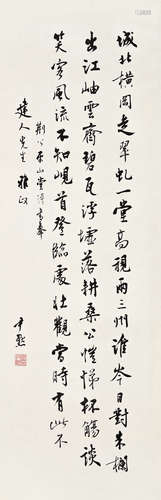 城北橫岡走翠虬一堂高視兩三州淮岑日對朱欄
出江岫雲齊碧瓦浮墟落耕桑公愷悌杯觴談
笑客風流不知峴首登臨處壯觀當時有此不
荊公平山堂詩書奉
建人先生雅政
尹默